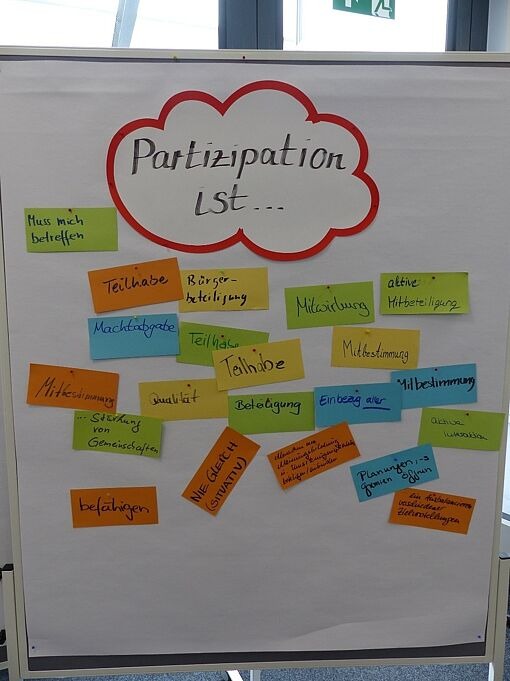 Partizipation
ist...
Muss mich
betreffen
Teilhabe
Bürger-
beteiligung
Mitwirkung
aktive
Mitbeteiligung
Machtabgabe
Teilhabe
Teilhabe
Mitbestimmung
Mitbestimmung
Qualität
Beteiligung
Einbezug aller
Mitbestimmung
... Stärkung
von
Gemeinschaften
aktive
befähigen
NIE GLEICH
(SITUATIV)
Planungen,
gremien öffnen
Zielvorstellungen